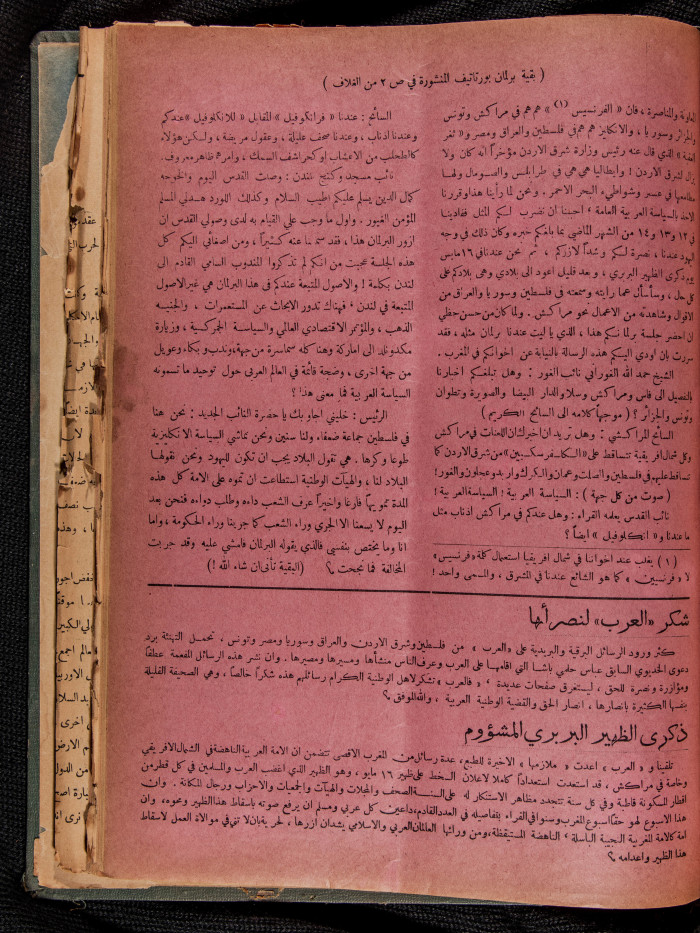 ( بقية برلمان بورتاتيف المنشورة في ص ٢ من الغلاف )
المعاونة والمناصرة ، فان « الفرنسيس (١) » هم هم في مراكش وتونس
والجزائر وسوريا ، والانكليز هم هم في فلسطين والعراق ومصر و « ثغر
العقبة » الذي قال عنه رئيس وزارة شرق الاردن مؤخراً انه كان ولا
يزال لشرق الاردن ! وايطاليا هي هي في طرابلس والصومال ولها
مطامعها في عسير وشواطيء البحر الاحمر . ونحن لما رأينا هذا وقررنا
الاخذ بالسياسة العربية العامة ، احببنا ان نضرب لكم المثل فقادينا
في ١٢ و ١٣ و ١٤ من الشهر الماضي بما بلغكم خبره وكان ذلك في وجه
اليهود عندنا ، نصرة لكم وشداً لازركم ، ثم نحن عندنا في ١٦ مايس
يوم ذكرى الظهير البربري ، وبعد قليل اعود الى بلادي وهي بلادكم على
كل حل ، وسأسأل عما رايته وسمعته في فلسطين وسوريا والعراق من
الاقوال وشاهدته من الاعمال نحو مراكش . ولما كان من حسن حظي
ان احضر جلسة برلمانكم هذا ، الذي يا ليت عندنا برلمان مثله ، فقد
سررت بان اودي اليكم هذه الرسالة بالنيابة عن اخوانكم في المغرب .
الشيخ حمد الله الغوراني نائب الغور : وهل تبلغكم اخبارنا
بالتفصيل الى فاس ومراكش وسلا والدار البيضا والصويرة وتطوان
وتونس والجزائر ؟ ( موجهاً كلامه الى السائح الكريم )
السائح المراكشي : وهل تريد ان اخبرك ان اللعنات في مراكش
وكل شمال افريقية تتساقط على « السكاسفر سكيين » من شرق الاردن كما
تساقط عليهم في فلسطين والسلط وعمان والكرك واربد وعجلون والغور !
( صوت من كل جهة ) : السياسة العربية ! السياسة العربية !
نائب القدس يعلمه القراء : وهل عندكم في مراكش اذناب مثل
ما عندنا و « انكلوفيل » ايضاً ؟
( ١ ) يغلب عند اخواننا في شمال افريقيا استعمال كلمة « فرنسيس »
لا « فرنسيين » كما هو الشائع عندنا في المشرق ، والمسمى واحد !
السائح : عندنا « فرانكوفيل » المقابل « للانكلوفيل » عندكم
وعندنا اذناب ، وعندنا صحف عليلة ، وعقول مريضة ، ولكن هؤلاء
كالطحلب من الاعشاب او كحراشف السمك ، وامرهم ظاهر معروف .
نائب مسجد لندن : وصلت القدس اليوم والخوجه
كمال الدين يسلم عليكم اطيب السلام وكذلك اللورد هدلي المسلم
المؤمن الغيور . واول ما وجب علي القيام به لدى وصولي القدس ان
ازور البرلمان هذا ، فقد سمعنا عنه كثيراً ، ومن اصغائي اليكم كل
هذه الجلسة عجبت من انكم لم تذكروا المندوب السامي القادم الى
لندن بكلمة ! والاصول المتبعة عندكم في هذا البرلمان هي غير الاصول
المتبعة في لندن ، فهناك تدور الابحاث عن المستعمرات ، والجنيه
الذهب ، والمؤتمر الاقتصادي العالي والسياسة الجمركية ، وزيارة
مكدونلد الى اماركة وهنا كله سماسرة من جهة ، وندب وبكاء وعويل
من جهة اخرى ، وضجة قائمة في العالم العربي حول توحيد ما تسمونه
السياسة العربية فما معنى هذا ؟
الرئيس : خليني اجاوبك يا حضرة النائب الجديد : نحن هنا
في فلسطين جماعة ضعفاء ولنا سنين ونحن نماشي السياسة الانكليزية
طوعاً وكرها . هي تقول البلاد يجب ان تكون لليهود ونحن نقول
البلاد لنا ، والهيآت الوطنية استطاعت ان تموه على الامة كل هذه
المدة تمويهاً فارغا واخيراً عرف الشعب داءه وطلب دواءه فنحن بعد
اليوم لا يسعنا الا الجري وراء الشعب كما جرينا وراء الحكومة ، واما
انا وما يختص بنفسي فالذي يقوله البرلمان فامشي عليه وقد جربت
المخالفة فما نجحت ؟ (البقية تأتي ان شاء الله !)
شكر «العرب» لنصرائها
كثر ورود الرسائل البرقية والبريدية على « العرب » من فلسطين وشرق الاردن والعراق وسوريا ومصر وتونس ، تحمل التهنئة برد
دعوى الخديوي السابق عباس حلمي باشا التي اقامها على العرب وعرف الناس منشأها ومسيرها ومصيرها . وان نشر هذه الرسائل المفعمة عطفاً
ومؤازرة ونصرة للحق ، ليستغرق صفحات عديدة ، « فالعرب » تشكر لاهل الوطنية الكرام رسائلهم هذه شكراً خالصاً ، وهي الصحيفة القليلة
بنفسها الكثيرة بانصارها ، انصار الحق والقضية الوطنية العربية ، والله الموفق ؟
ذكرى الظهير البربري المشؤوم
تلقينا و « العرب » اعدت « ملازمها » الاخيرة للطبع ، عدة رسائل من المغرب الاقصى تتضمن ان الامة العربية الناهضة في الشمال الافريقي
وخاصة في مراكش ، قد استعدت استعداداً كاملا لاعلان السخط على ظهير ١٦ مايو ، وهو الظهير الذي اغضب العرب والمسلمين في كل قطر من
اقطار المسكونة قاطبة وفي كل سنة تتجدد مظاهر الاستنكار له على السنة الصحف والمجلات والهيآت والجمعيات والاحزاب ورجال المكانة . وان
هذا الاسبوع لهو حقا اسبوع المغرب وسنوافي القراء بتفاصيله في العدد القادم ، داعين كل عربي ومسلم ان يرفع صوته باسقاط هذا الظهير ومحوه ، وان
امة كالامة المغربية النجيبة الباسلة ، الناهضة المستيقظة ، ومن ورائها العالمان العربي والاسلامي يشدان ازرها ، لحرية بان لا تني في موالاة العمل لاسقاط
هذا الظهير واعدامه ؟